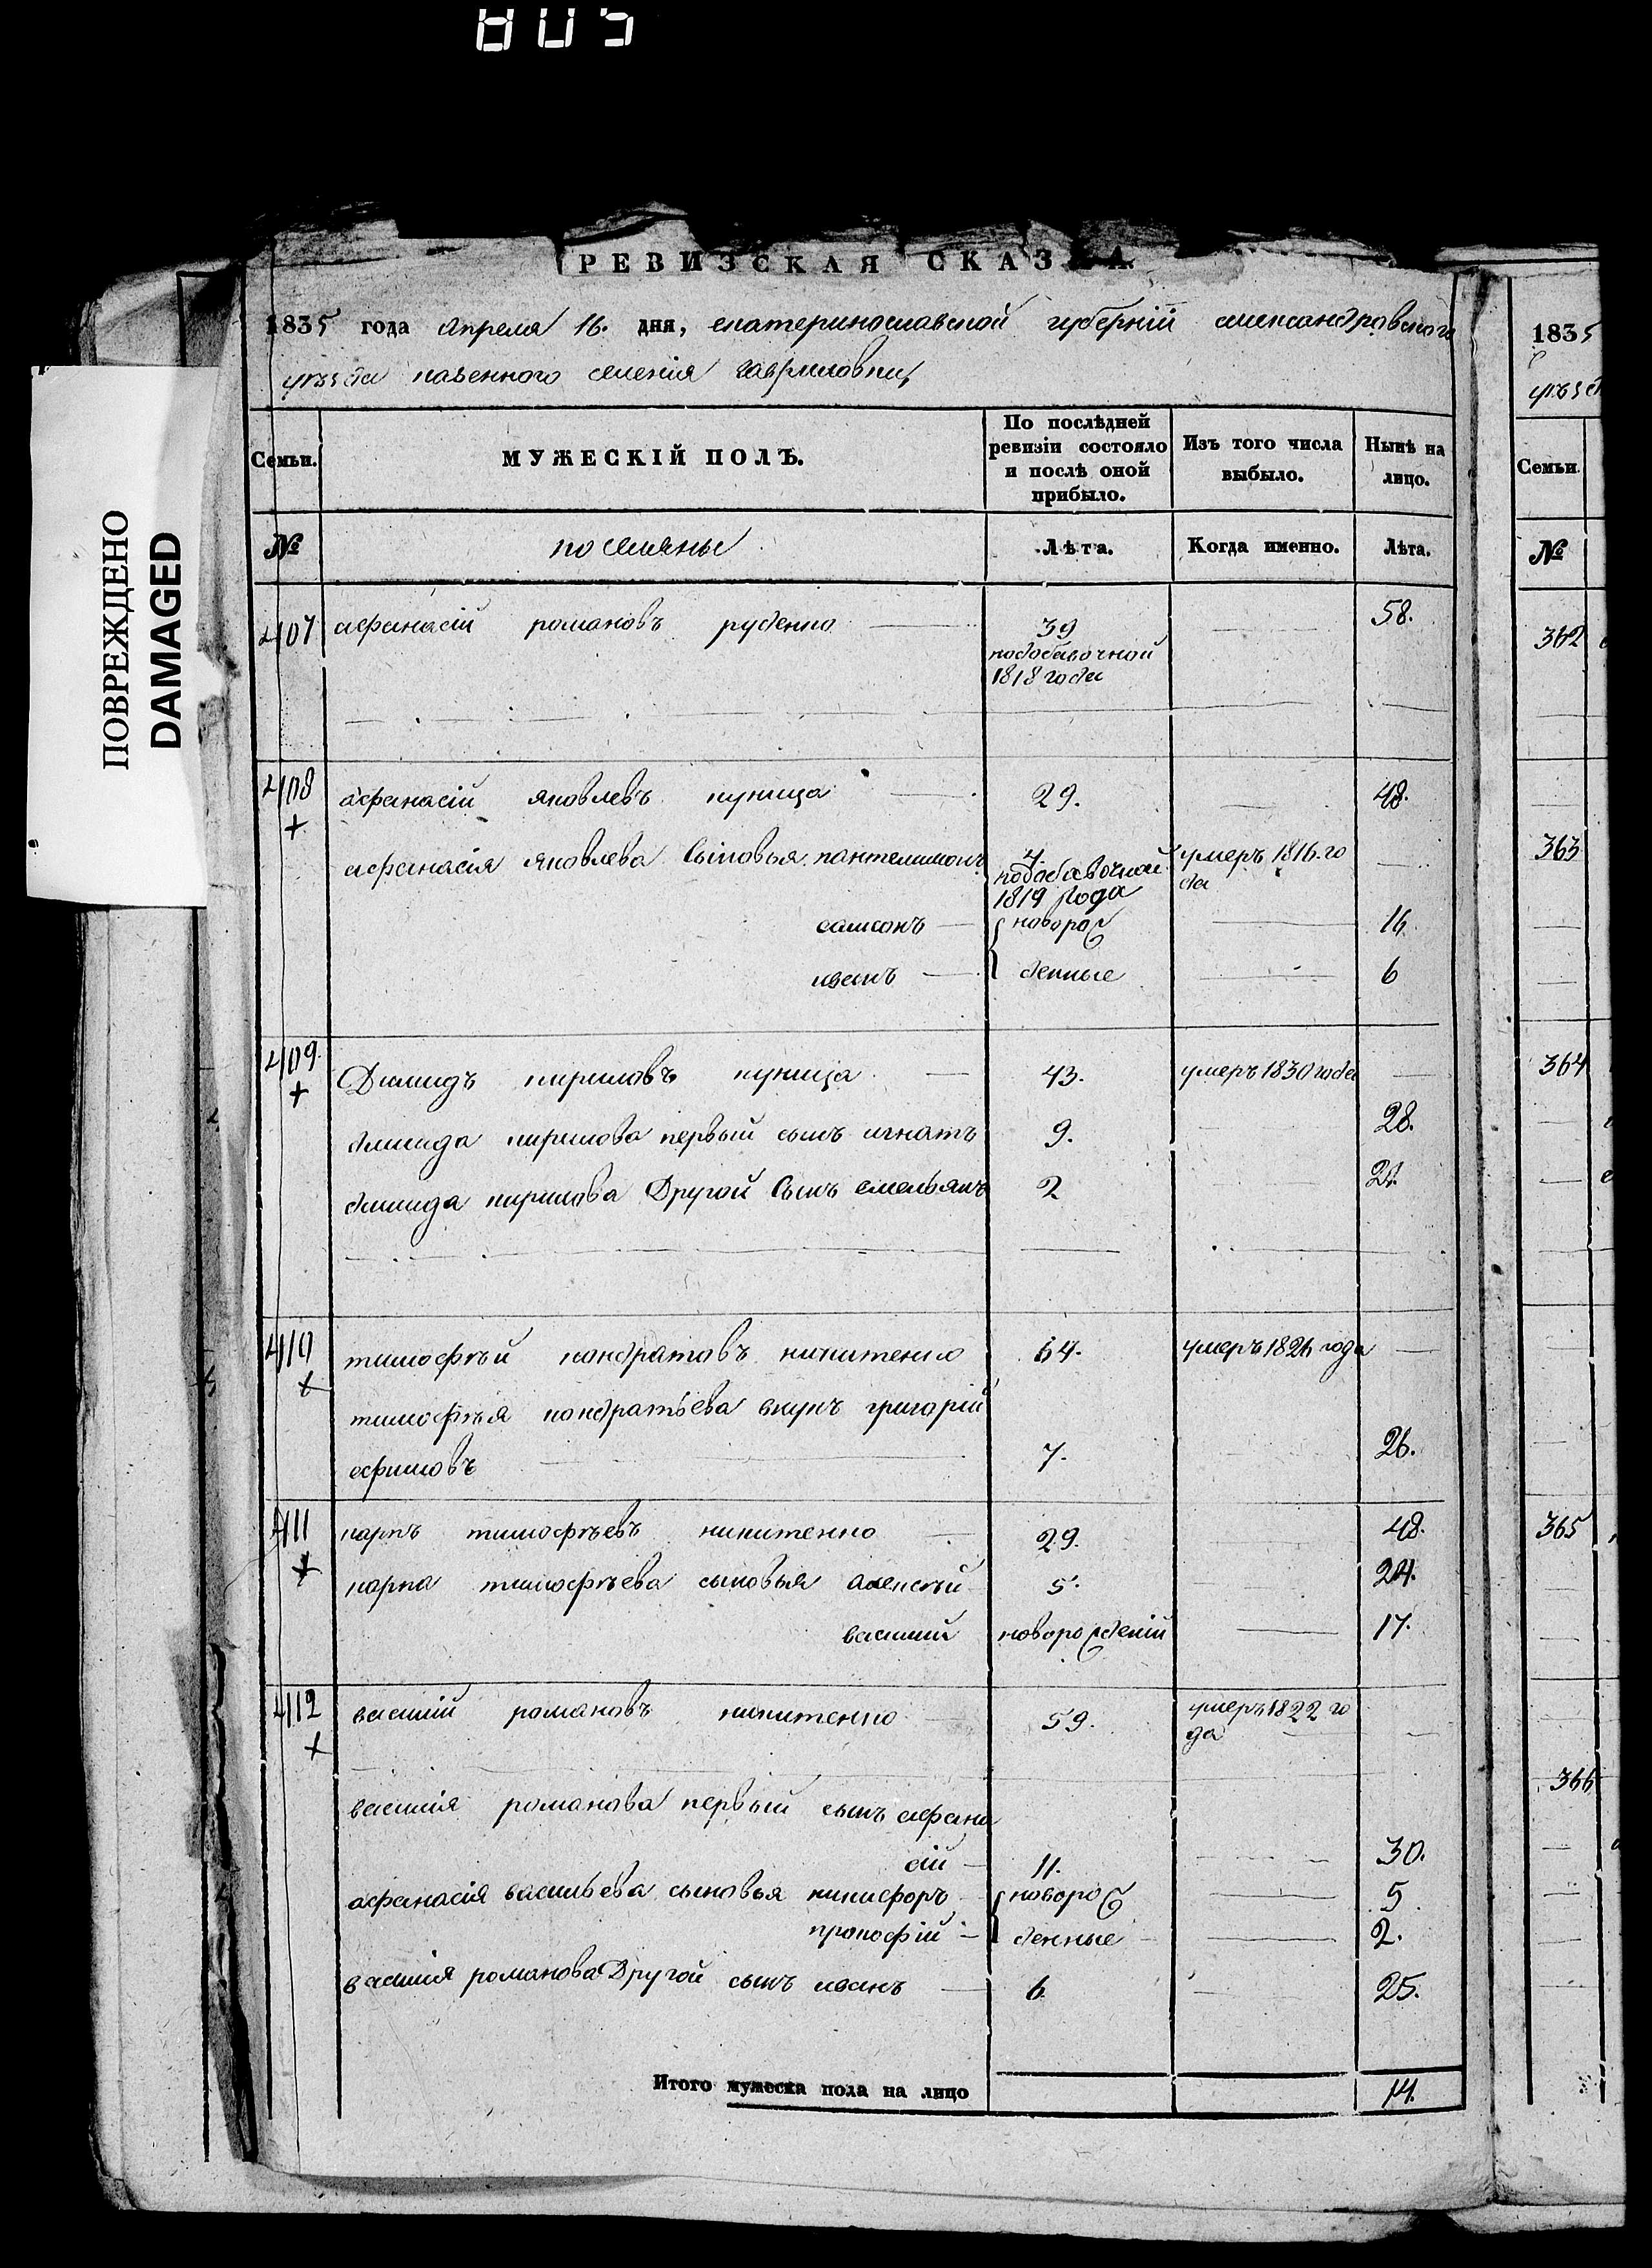 805
ПОВРЕЖДЕНО
DAMAGED
РЕВИЗСКАЯ СКАЗКА
1835 года апреля 16. дня, екатеринославской губерніи александровского
уѣзда казенного селенія гавриловки,
Семьи.
МУЖЕСКІЙ ПОЛЪ.
По послѣдней ревизіи состояло и послѣ оной прибыло.
Изъ того числа выбыло.
Нынѣ на лицо.
№
поселяне
Лѣта.
Когда именно.
Лѣта.
407 афанасій романовъ руденко 39 58.
подобавочной
1818 года
408 афанасій яковлевъ куница 29. 48.
+
афанасія яковлева сыновья пантелимонъ 4. умеръ 1816. го
подобавочной да
1819 года
самсонъ новорож 16.
иванъ денные 6
409. Димидъ кириловъ куница 43. умеръ 1830 года
+
димида кирилова первый сынъ игнатъ 9. 28.
димида кирилова Другой Сынъ емельянъ 2 21.
410 тимофѣй кондратовъ никитенко 64. умеръ 1826 года
+
тимофѣя кондратьева внукъ григорій
ефимовъ 7. 26.
411 карпъ тимофѣевъ никитенко 29. 48.
+
карпа тимофѣева сыновья алексѣй 5. 24.
василий новорожденій 17.
412 василій романовъ никитенко 59. умеръ 1822 го
+ да
василія романова первый сынъ афана
сій 11. 30.
афанасія васильева сыновья никифоръ новорож 5
прокофій денные 2.
василія романова Другой сынъ иванъ 6. 25.
Итого мужеска пола на лицо 14.
1835
уѣзд
Семьи
№
362
363
364
365
366